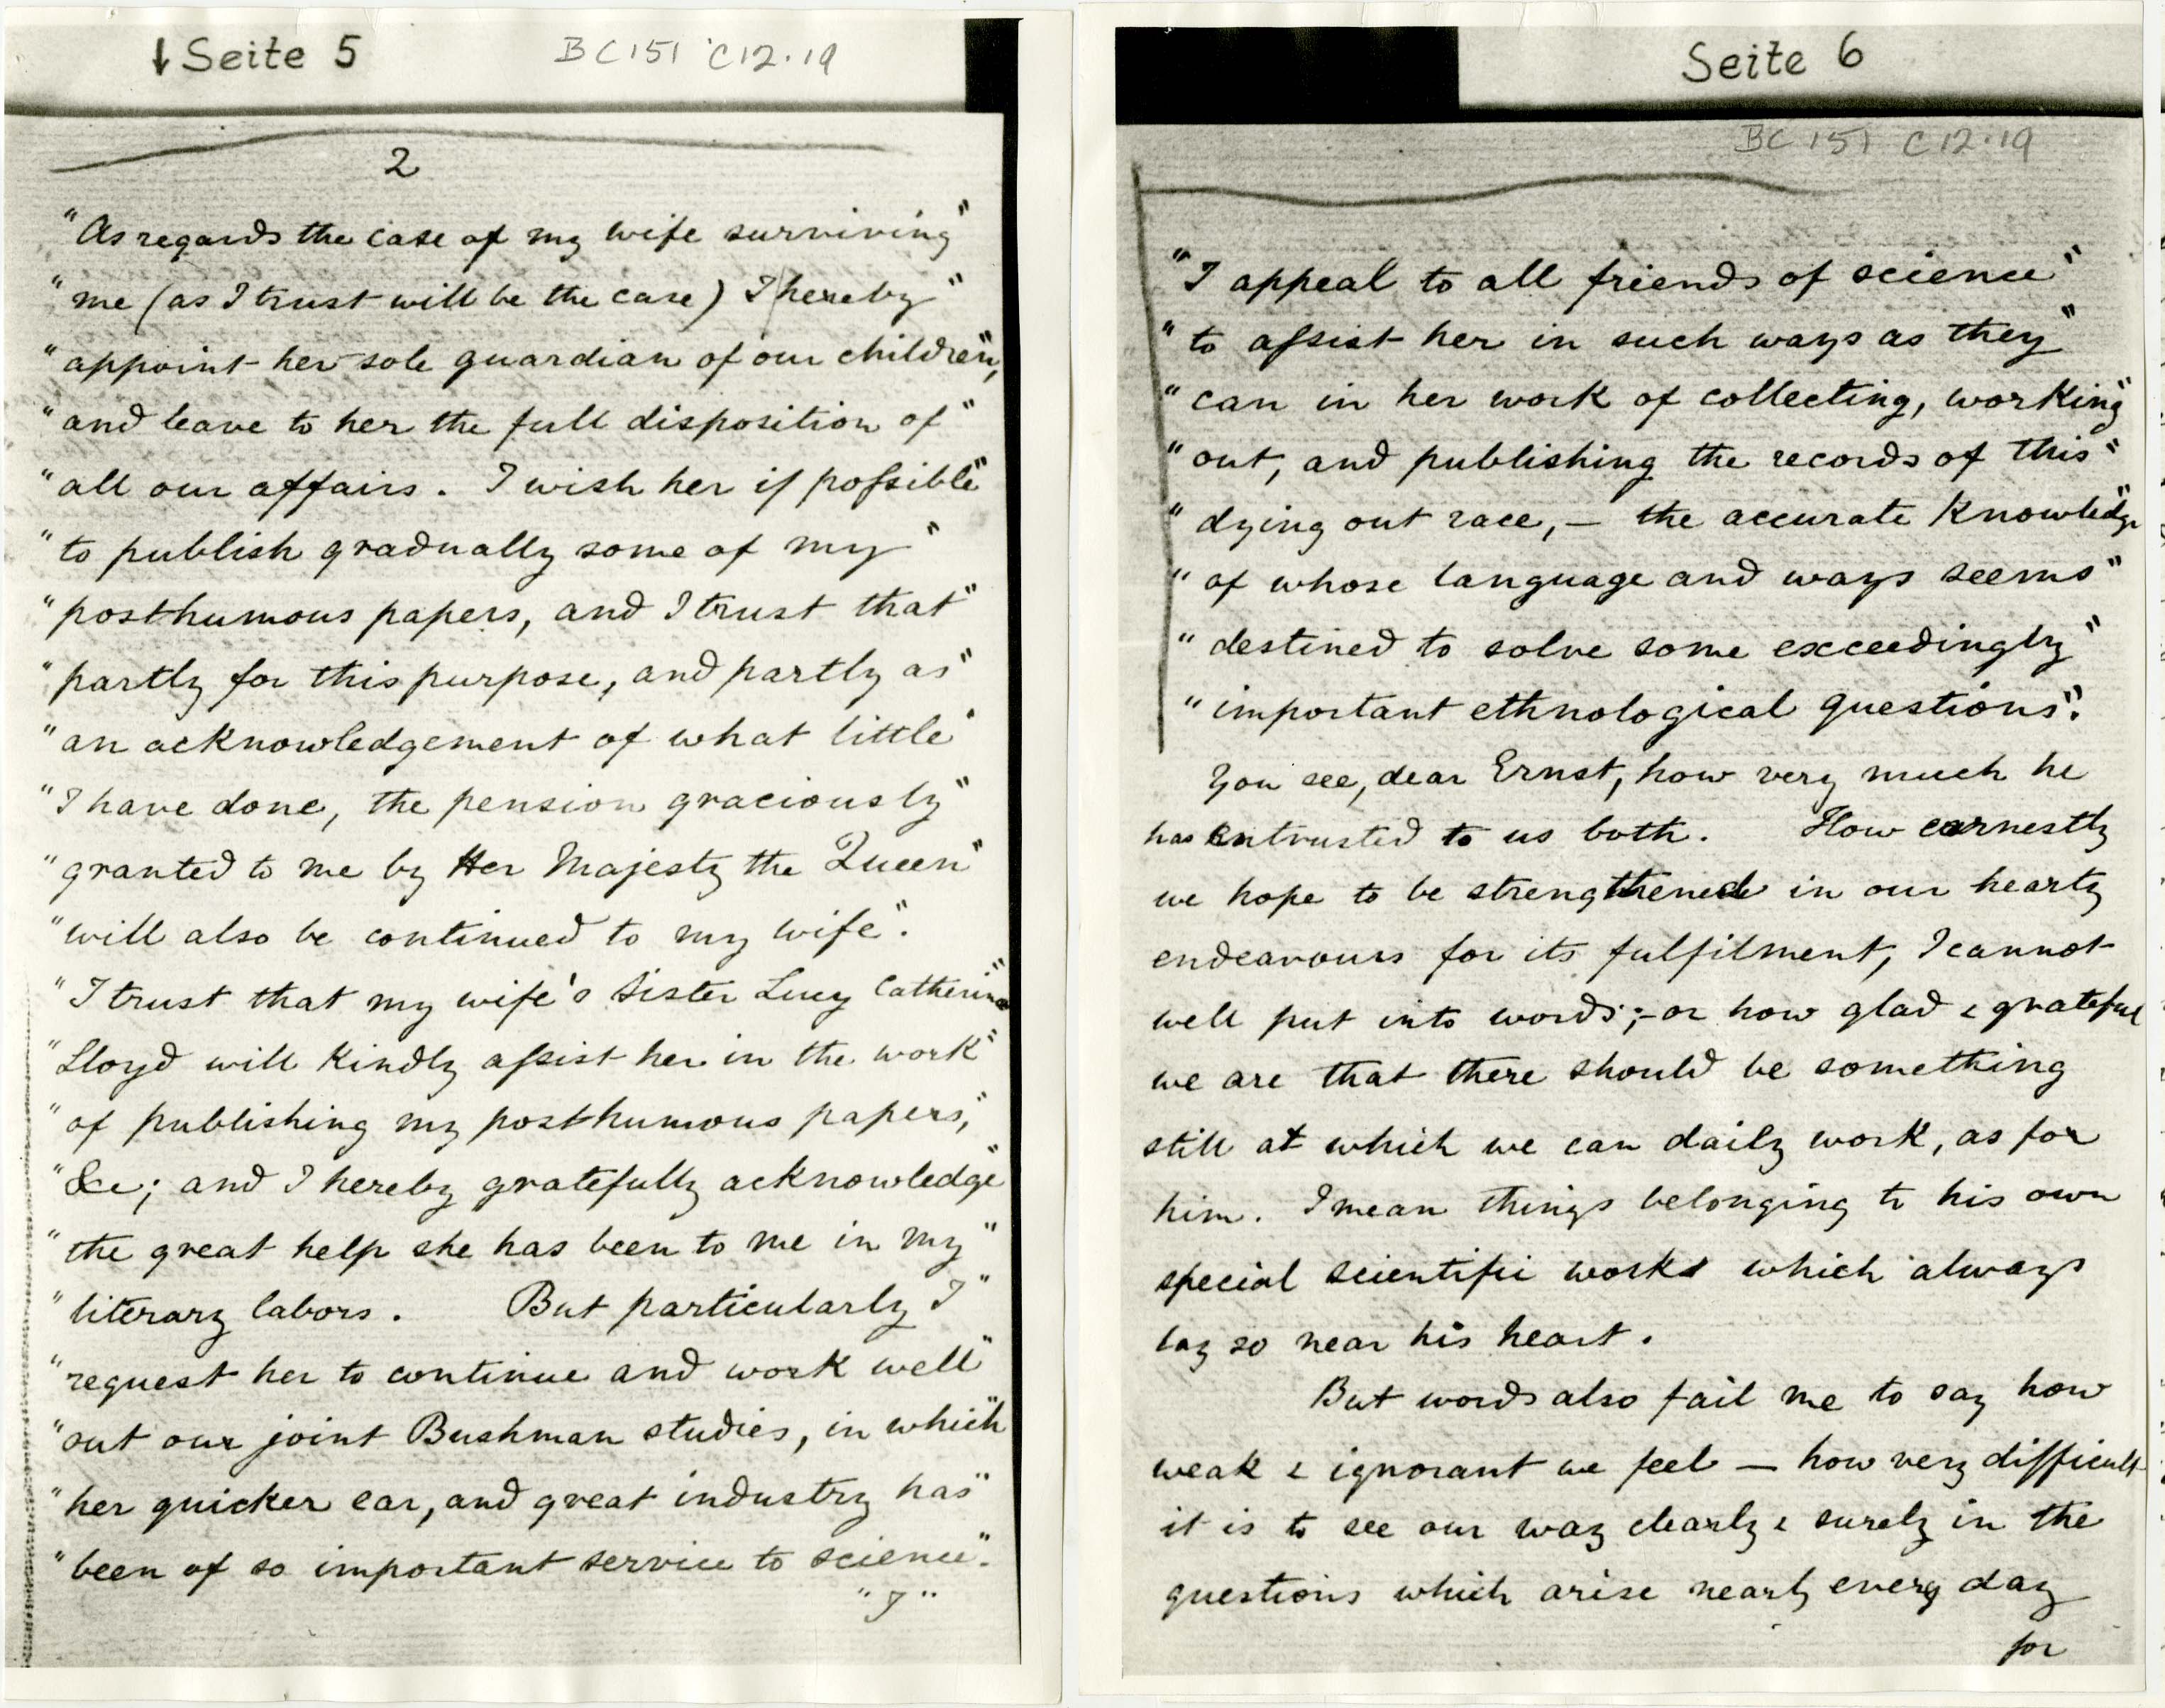 ↓ Seite 5
BC151 C12.19
2
"As regards the case of my wife surviving"
"me (as I trust will be the case) I hereby"
"appoint her sole guardian of our children,"
"and leave to her the full disposition of"
"all our affairs. I wish her if possible"
"to publish gradually some of my"
"posthumous papers, and I trust that"
"partly for this purpose, and partly as"
"an acknowledgement of what little"
"I have done, the pension graciously"
"granted to me by Her Majesty the Queen"
"will also be continued to my wife".
"I trust that my wife's sister Lucy Catherine"
"Lloyd will kindly assist her in the work"
"of publishing my posthumous papers,"
"&c; and I hereby gratefully acknowledge"
"the great help she has been to me in my"
"literary labors. But particularly I"
"request her to continue and work well"
"out our joint Bushman studies, in which"
"her quicker ear, and great industry has"
"been of so important service to science".
"I"
Seite 6
BC 151 C12.19
"I appeal to all friends of science"
"to assist her in such ways as they"
"can in her work of collecting, working"
"out, and publishing the records of this"
"dying out race, — the accurate knowledge"
"of whose language and ways seems"
"destined to solve some exceedingly"
"important ethnological questions".
You see, dear Ernst, how very much he
has entrusted to us both. How earnestly
we hope to be strengthened in our hearty
endeavours for its fulfilment, I cannot
well put into words; - or how glad & grateful
we are that there should be something
still at which we can daily work, as for
him. I mean things belonging to his own
special scientific works which always
lay so near his heart.
But words also fail me to say how
weak & ignorant we feel — how very difficult
it is to see our way clearly & surely in the
questions which arise nearly every day
for